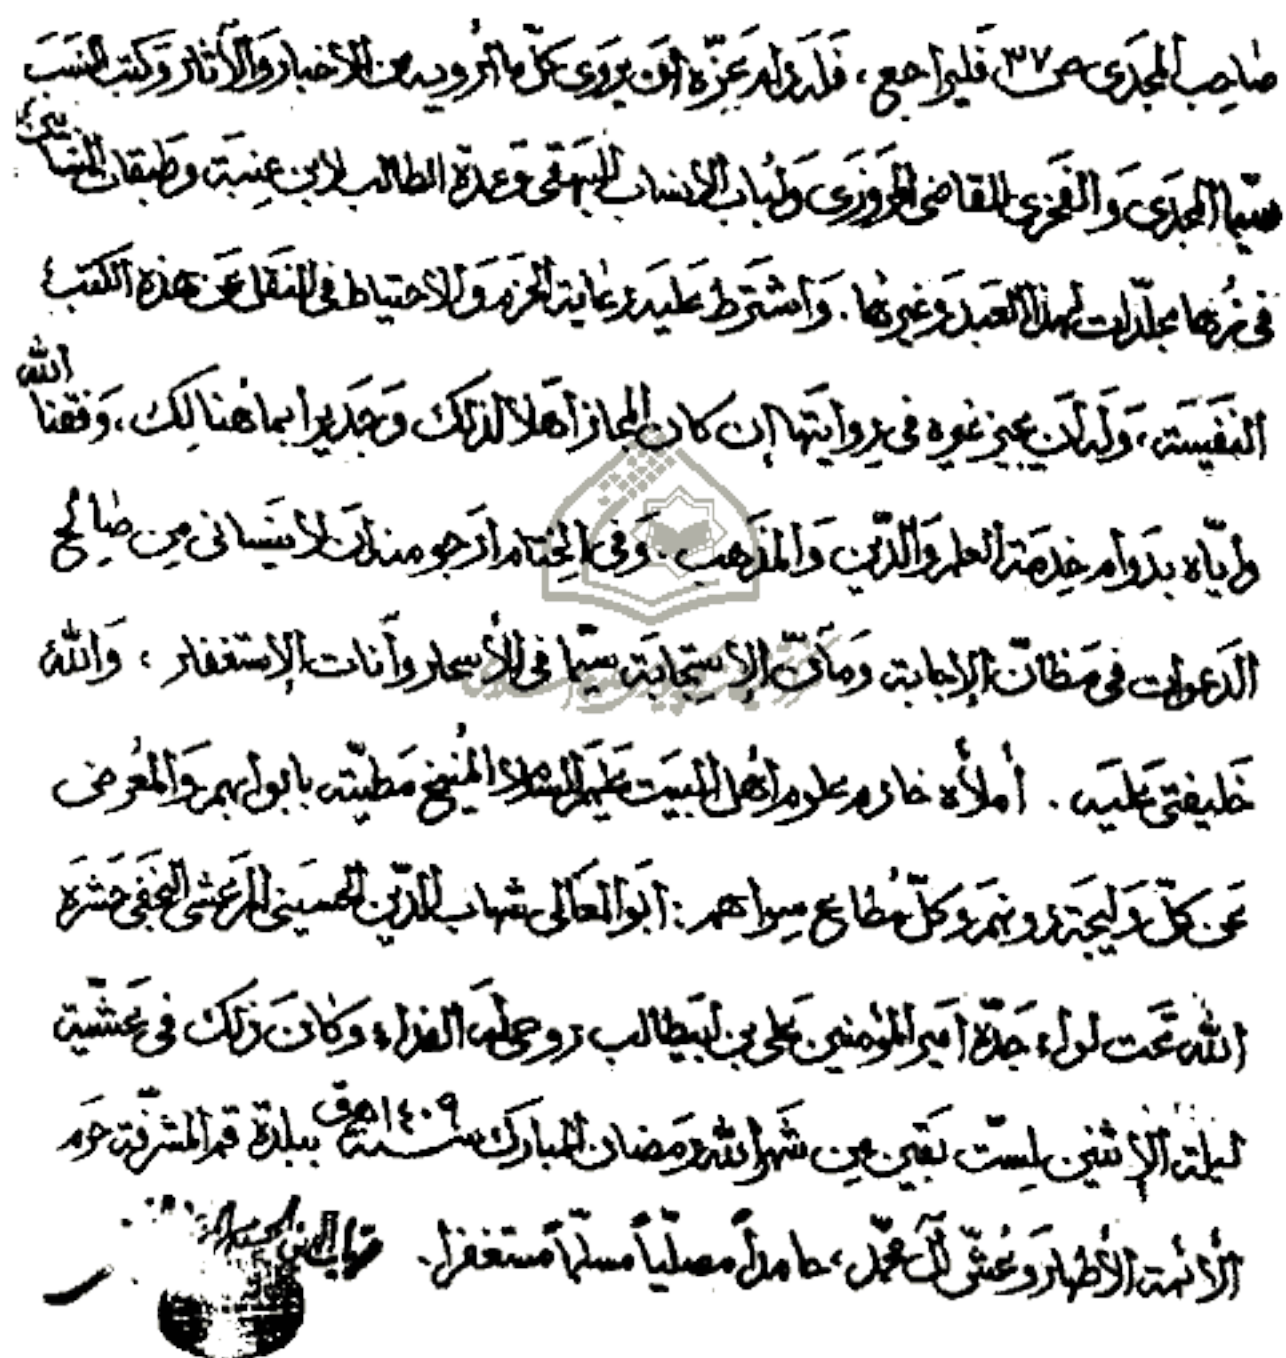 صاحب المجدى ص ٣٧ فليراجع، فله دام عزّه ان يروى كلّ ما أرويه من الأخبار والآثار وكتب النسب
سيّما المجدى والفخرى للقاضى المروزى ولباب الأنساب للبيهقى وعمدة الطالب لابن عنبة وطبقات النسّابين
فى مجلّدات لهذا العبد وغيرها. واشترط عليه رعاية الحزم والاحتياط فى النقل عن هذه الكتب
النفيسة، وله ان يجيز غيره فى روايتها إن كان المجاز أهلا لذلك وجديرا بما هنالك، وفقنا الله
وايّاه بدوام خدمة العلم والدّين والمذهب. وفى الختام ارجو منه ان لا ينسانى من صالح
الدعوات فى مظانّ الإجابة ومآنّ الإستجابة سيّما فى الأسحار وآنات الإستغفار، والله
خليفتى عليه. أملأه خادم علوم أهل البيت عليهم السلام المنيخ مطيّته بابوابهم والمعرض
عن كلّ وليجة دونهم وكلّ مطاع سواهم: ابو المعالى شهاب الدّين الحسينى المرعشى النجفى حشره
الله تحت لواء جدّه امير المؤمنين على بن ابيطالب روحى له الفداء وكان ذلك فى عشيّة
ليلة الإثنين لستّ بقين من شهر الله رمضان المبارك سنة ١٤٠٩ هق ببلدة قم المشرّفة حرم
الأئمة الأطهار وعشّ آل محمّد، حامداً مصلّياً مسلّماً مستغفرا.
شهاب الدين الحسينى